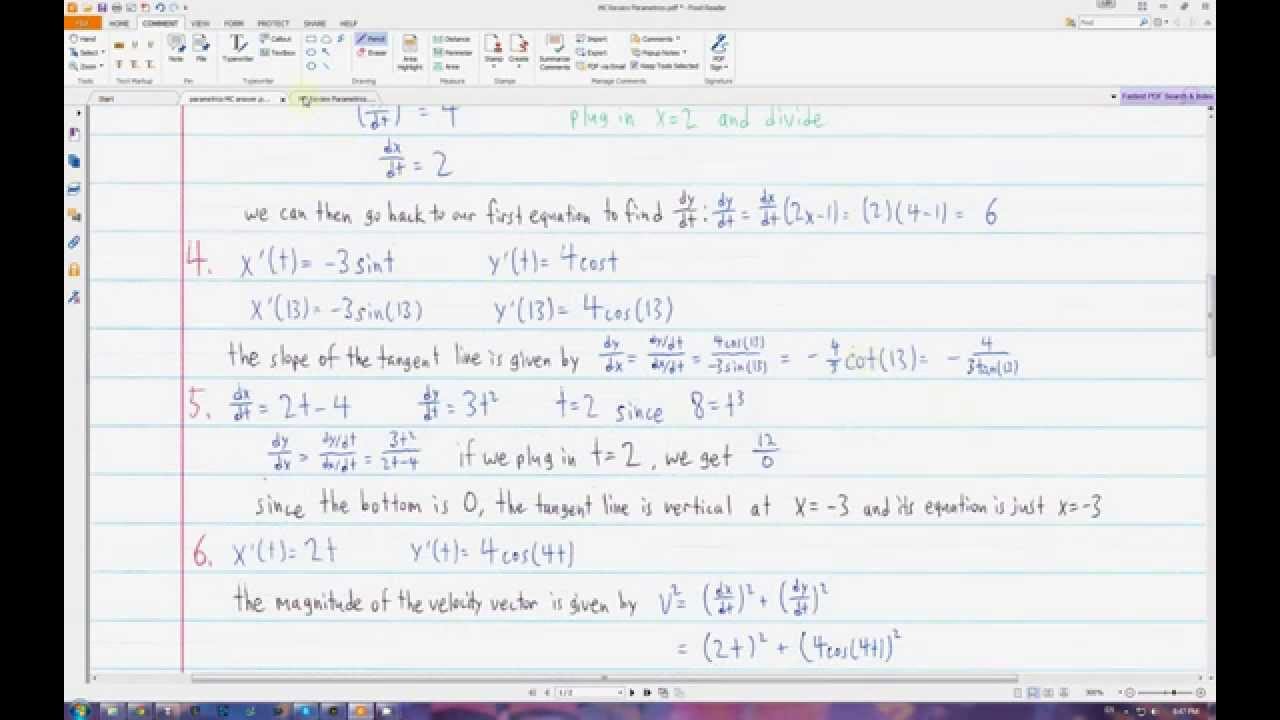 MC Review Parametrics.pdf * - Foxit Reader
FILE HOME COMMENT VIEW FORM PROTECT SHARE HELP
Find
Hand
Select
Zoom
Tools
Text Markup
Note
File
Pin
Typewriter
Callout
Textbox
Typewriter
Pencil
Eraser
Drawing
Area Highlight
Distance
Perimeter
Area
Measure
Stamp
Create
Stamps
Summarize Comments
Import
Export
PDF via Email
Comments
Popup Notes
Keep Tools Selected
Manage Comments
PDF Sign
Signature
Start
parametrics MC answer p...
MC Review Parametrics...
Fastest PDF Search & Index
(/dt) = 4 plug in x=2 and divide
dx/dt = 2
we can then go back to our first equation to find dy/dt: dy/dt = dx/dt(2x-1) = (2)(4-1) = 6
4. x'(t) = -3sint y'(t) = 4cost
x'(13) = -3sin(13) y'(13) = 4cos(13)
the slope of the tangent line is given by dy/dx = dy/dt/dx/dt = 4cos(13)/-3sin(13) = -4/3 cot(13) = -4/3tan(13)
5. dx/dt = 2t-4 dy/dt = 3t² t=2 since 8=t³
dy/dx = dy/dt/dx/dt = 3t²/2t-4 if we plug in t=2, we get 12/0
since the bottom is 0, the tangent line is vertical at x=-3 and its equation is just x=-3
6. x'(t) = 2t y'(t) = 4cos(4t)
the magnitude of the velocity vector is given by V² = (dx/dt)² + (dy/dt)²
= (2t)² + (4cos(4t))²
1/2
300%
EN
6:47 PM